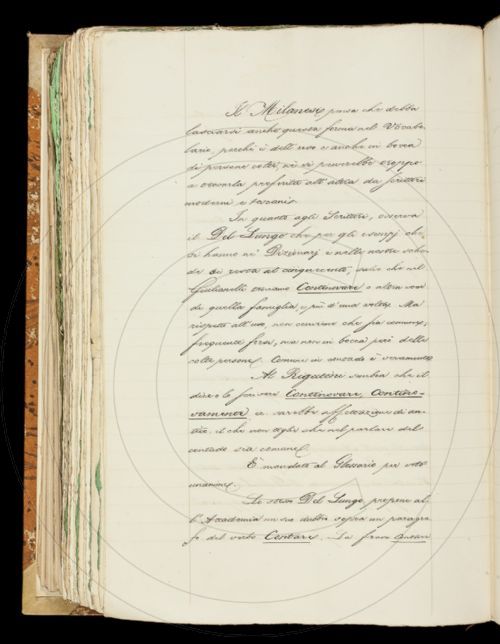 Il Milanesi pensa che debba
lasciarsi anche questa forma nel Vocabo-
lario, perchè è dell'uso e anche in bocca
di persone colte, nè si proverebbe troppo
a trovarla preferita all'altra da scrittori
moderni e toscani.
In quanto agli Scrittori, osserva
il Del Lungo che per gli esempj che
si hanno ne' Dizionarj e nelle nostre sche-
de si resta al cinquecento; salvo che nel
Giuliani troviamo Continovare o altra voce
di quella famiglia, e più d'una volta. Ma
rispetto all'uso, non conviene che sia comune;
frequente forse, ma non in bocca però delle
colte persone. Comune in contado è veramente
Al Rigutini sembra che il
dire o lo scrivere Continovare, Contino-
vamente ec. sarebbe affettazione di an-
tico: il che non toglie che nel parlare del
contado sia comune.
È mandata al Glossario per voti
unanimi.
Lo stesso Del Lungo, propone al-
l'Accademia un suo dubbio sopra un paragra-
fo del verbo Contare. La frase